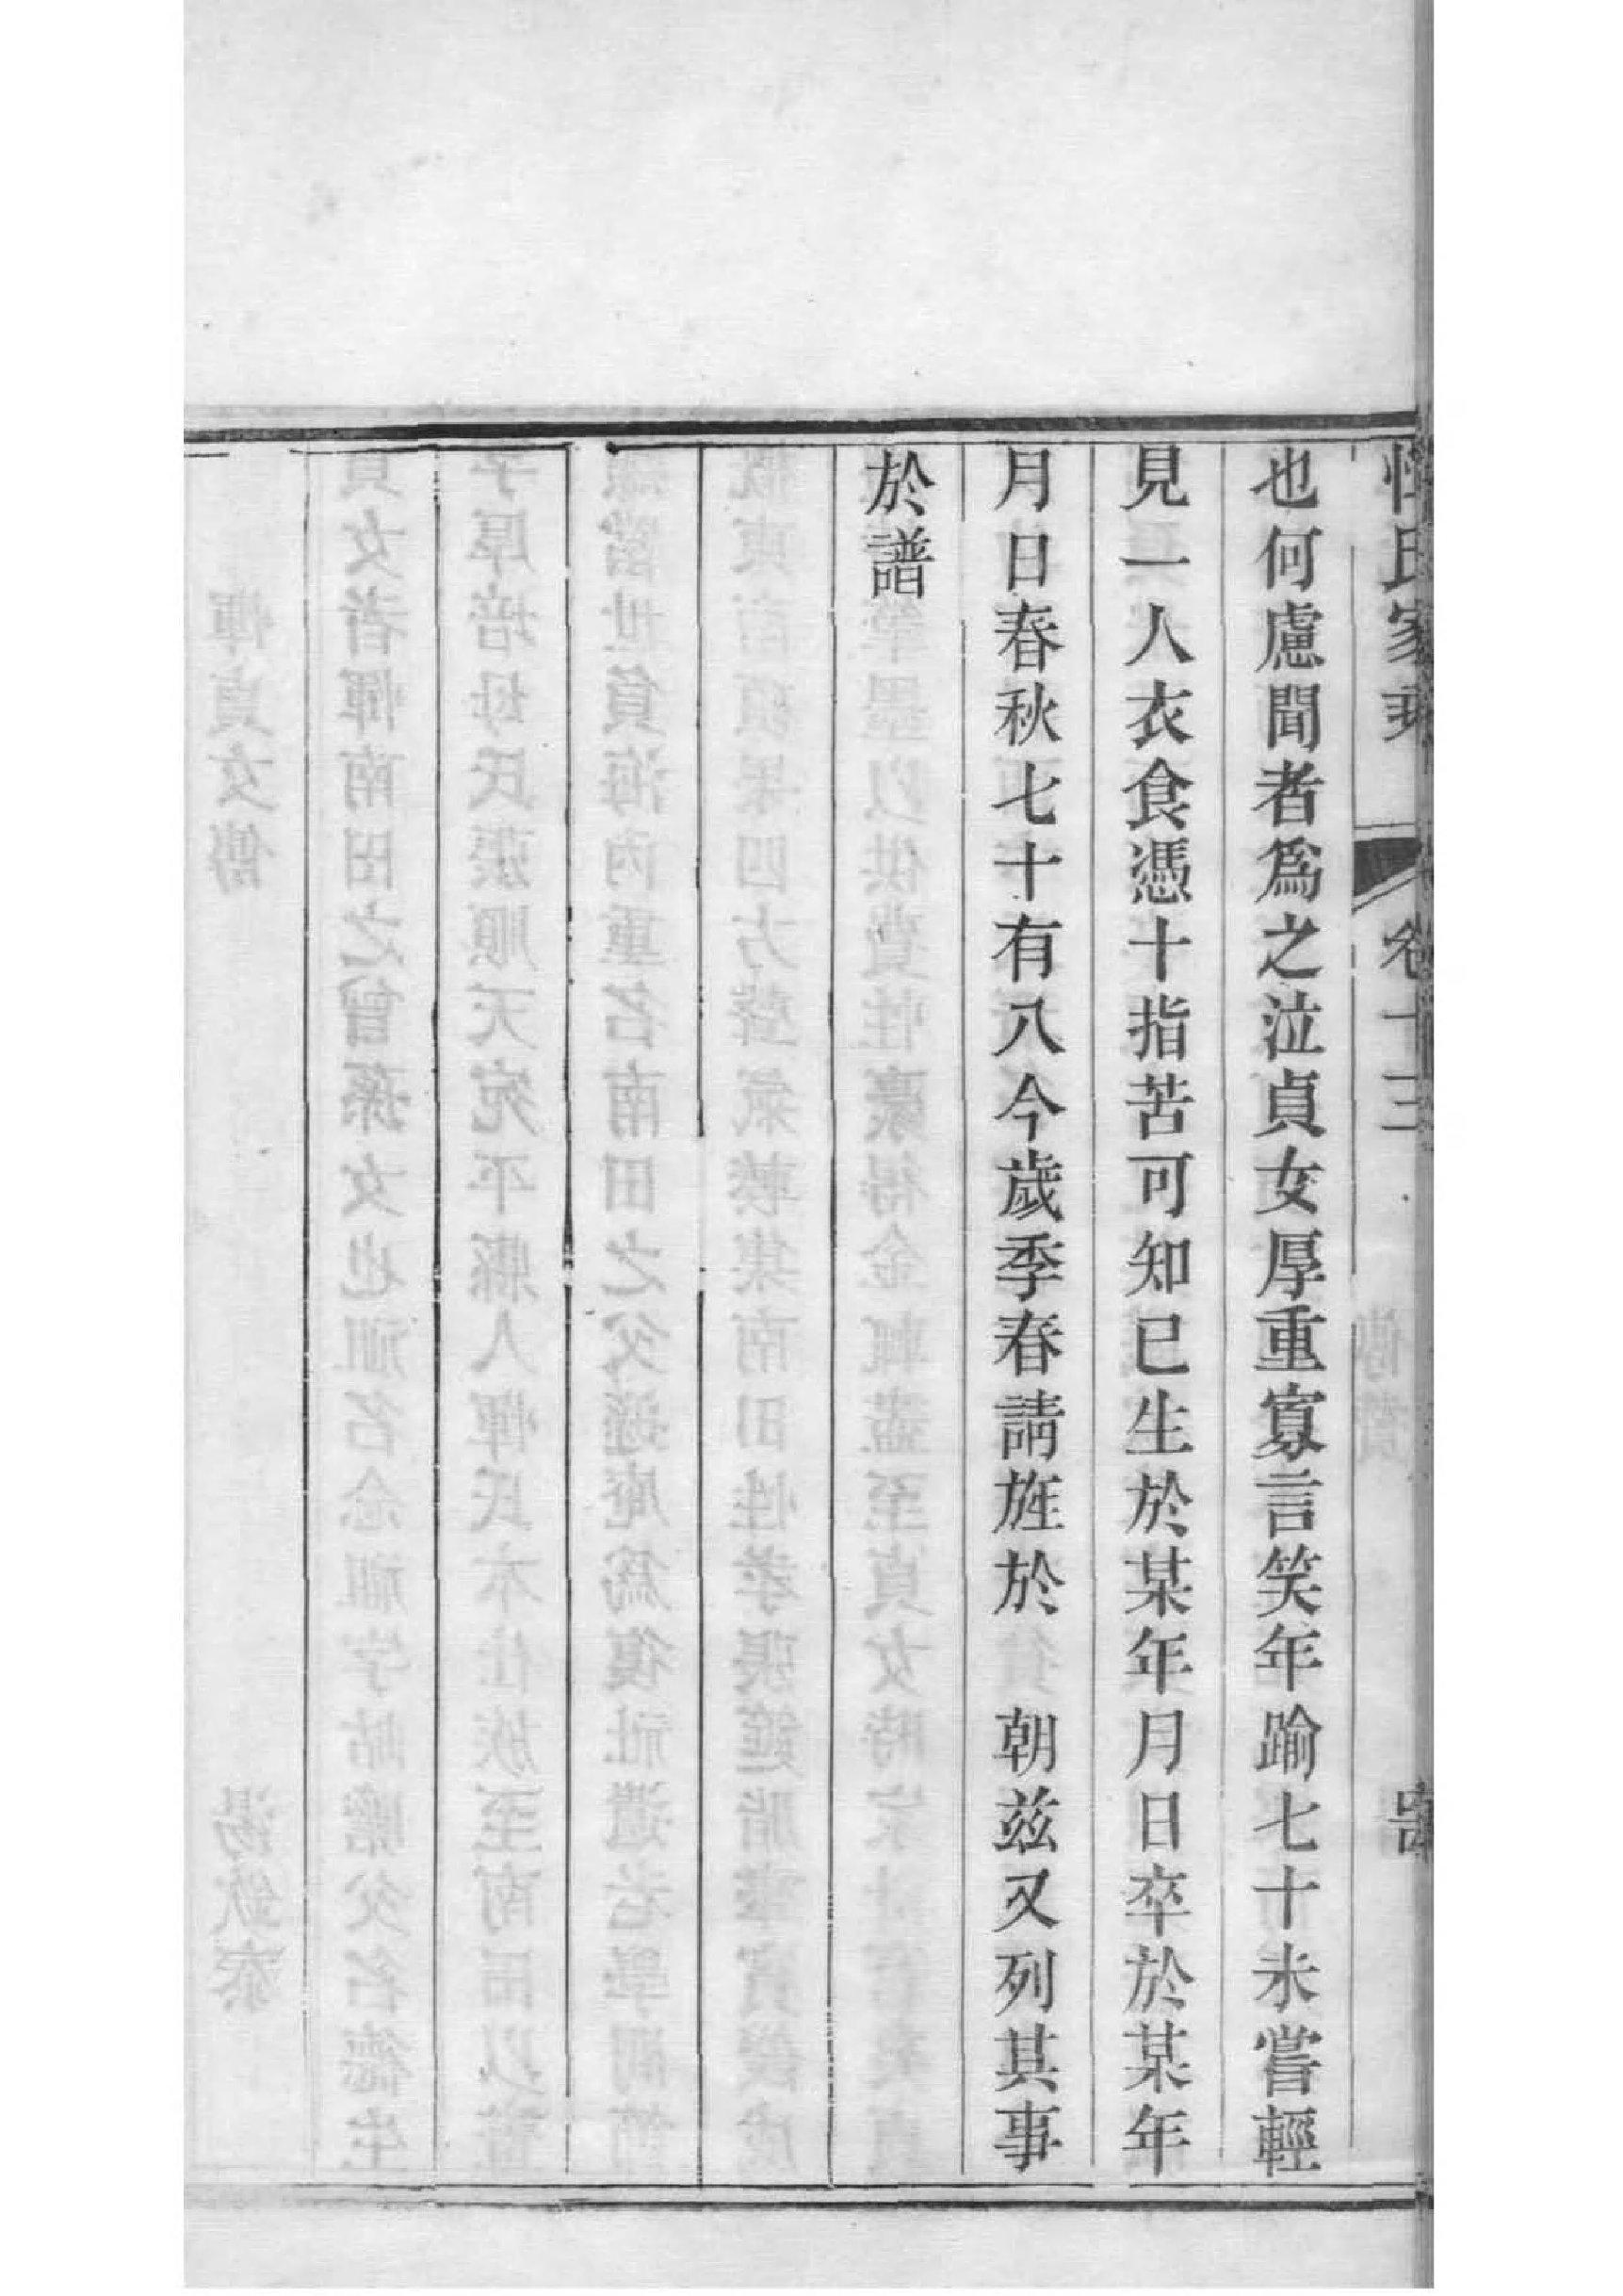 惲氏家乘 卷十三
也何慮聞者爲之泣貞女厚重寡言笑年踰七十未嘗輕
見一人衣食憑十指苦可知已生於某年月日卒於某年
月日春秋七十有八今歲季春請旌於 朝茲又列其事
於譜